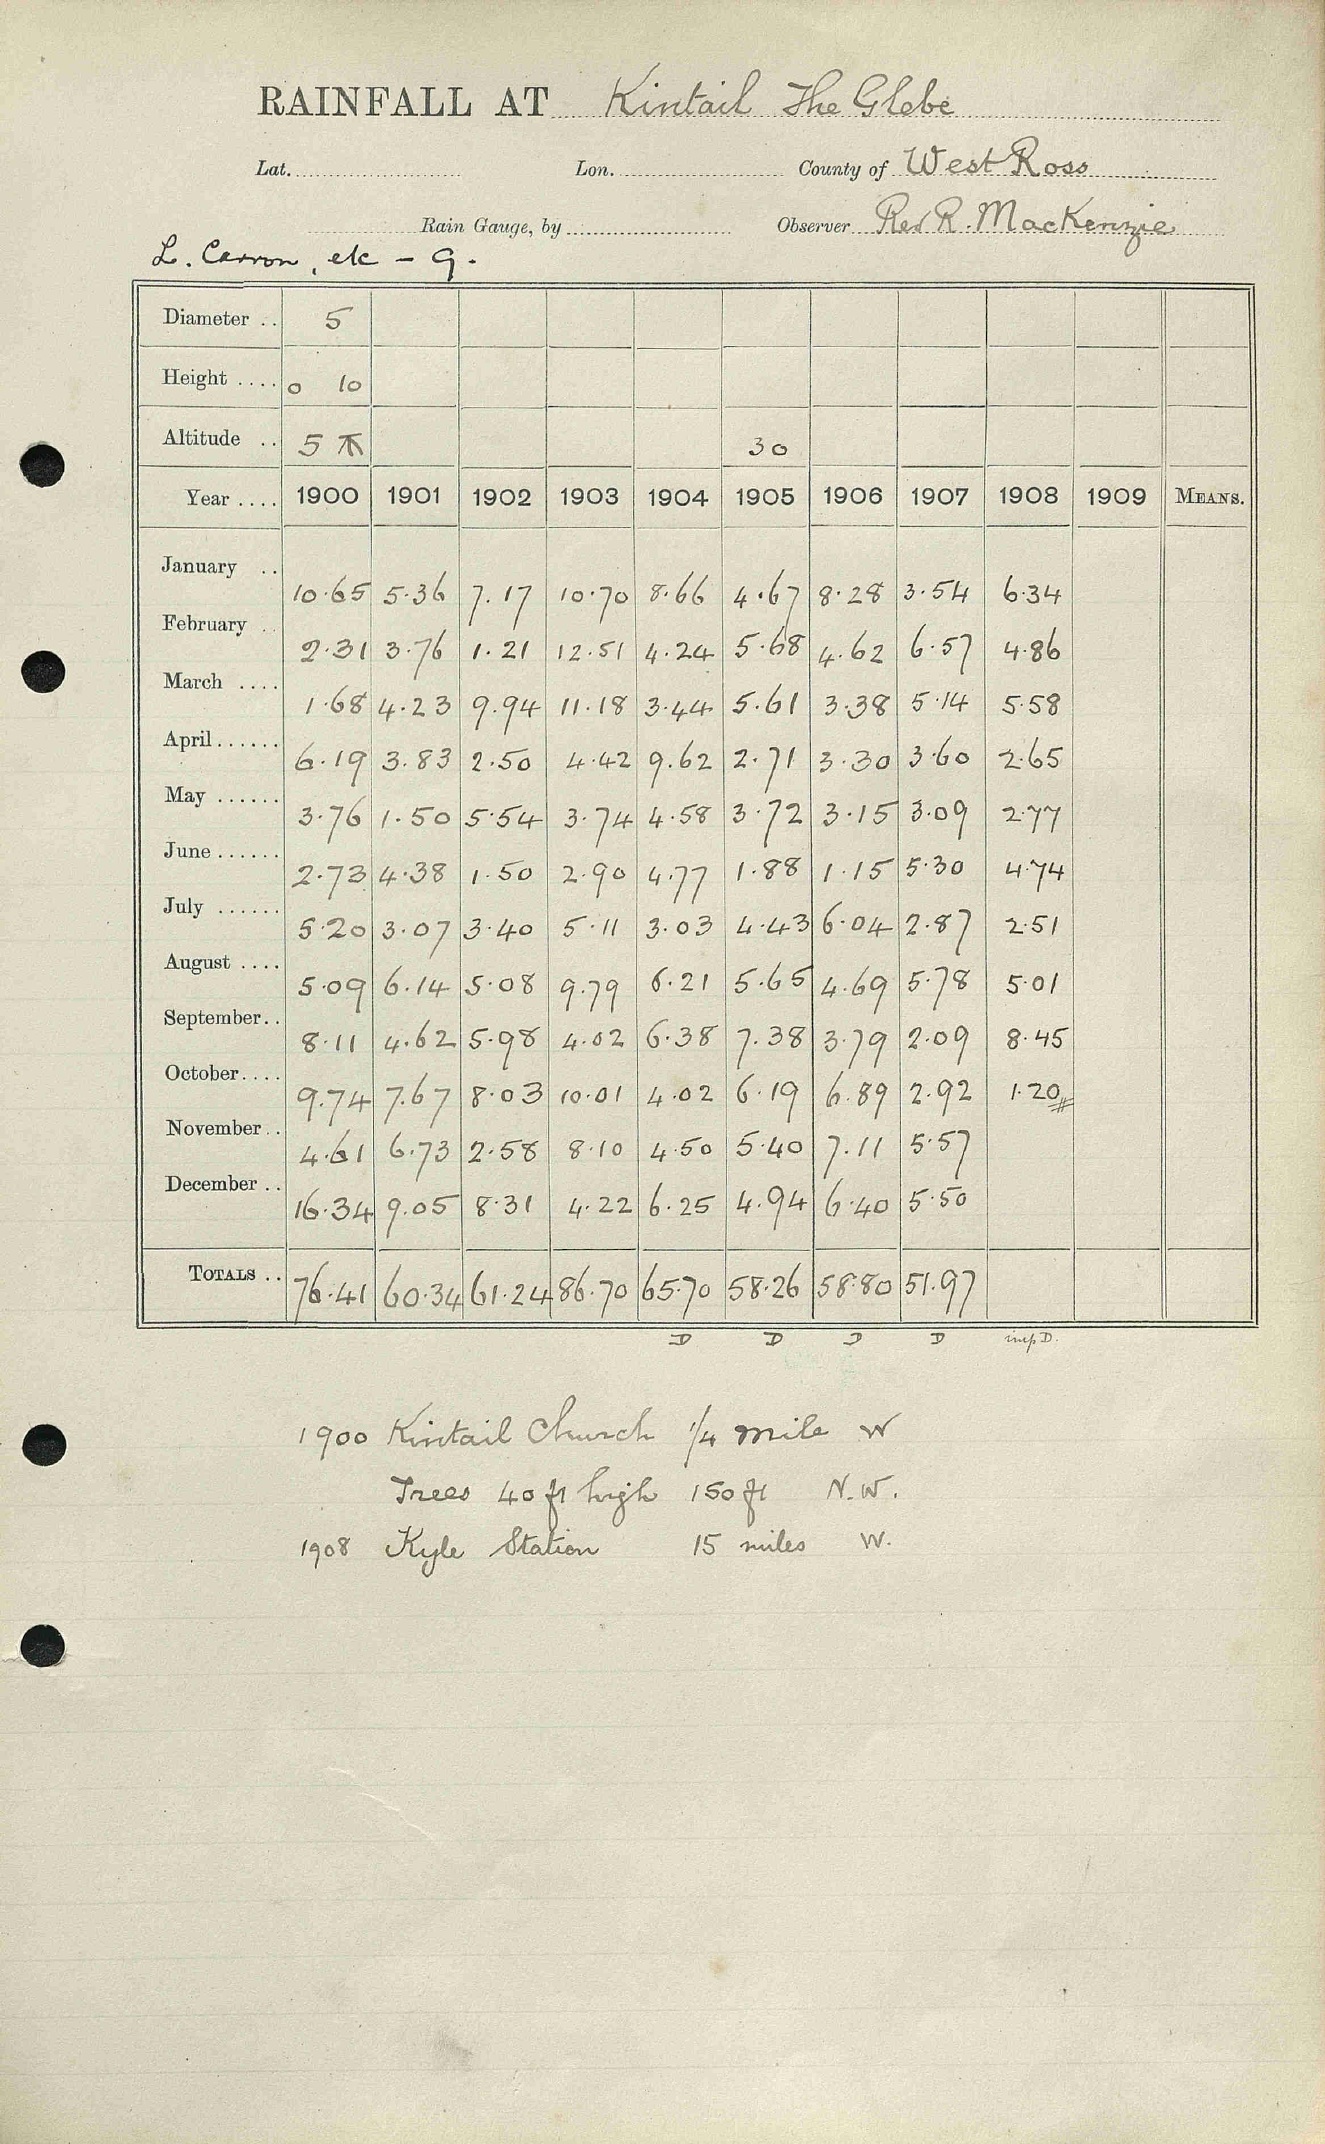 RAINFALL AT Kintail The Glebe
Lat. Lon. County of West Ross
Rain Gauge, by Observer Rev R. MacKenzie
L. Carron, etc - 9.
Diameter .. 5
Height .... 0 10
Altitude .. 5 30
Year .... 1900 1901 1902 1903 1904 1905 1906 1907 1908 1909 MEANS.
January .. 10.65 5.36 7.17 10.70 8.66 4.67 8.28 3.54 6.34
February .. 2.31 3.76 1.21 12.51 4.24 5.68 4.62 6.57 4.86
March .... 1.68 4.23 9.94 11.18 3.44 5.61 3.38 5.14 5.58
April ...... 6.19 3.83 2.50 4.42 9.62 2.71 3.30 3.60 2.65
May ...... 3.76 1.50 5.54 3.74 4.58 3.72 3.15 3.09 2.77
June ...... 2.73 4.38 1.50 2.90 4.77 1.88 1.15 5.30 4.74
July ...... 5.20 3.07 3.40 5.11 3.03 4.43 6.04 2.87 2.51
August .... 5.09 6.14 5.08 9.79 6.21 5.65 4.69 5.78 5.01
September .. 8.11 4.62 5.98 4.02 6.38 7.38 3.79 2.09 8.45
October .... 9.74 7.67 8.03 10.01 4.02 6.19 6.89 2.92 1.20
November .. 4.61 6.73 2.58 8.10 4.50 5.40 7.11 5.57
December .. 16.34 9.05 8.31 4.22 6.25 4.94 6.40 5.50
TOTALS .. 76.41 60.34 61.24 86.70 65.70 58.26 58.80 51.97
D D D D inc D.
1900 Kintail Church 1/4 mile W
Trees 40 ft high 150 ft N.W.
1908 Kyle Station 15 miles W.